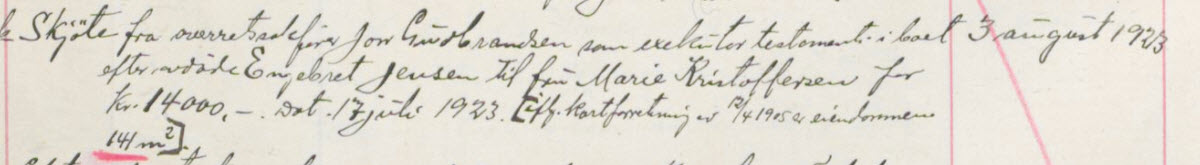 Skjöte fra overretssakförer Jon Gudbrandsen som exekutor testamenti i boet 3 august 1923
efter avdöde Engebret Jensen til fru Marie Kristoffersen for
Kr. 14000,-. Dat. 17 juli 1923. [iflg. kartforretning av 12/4 1905 er eiendommens
141 m²].